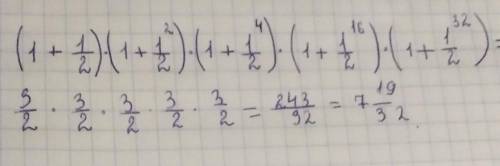 (1 + 1/2)·(1 + 1²/2)·(1 + 1⁴/2)·(1 + 1¹⁶/2)·(1 + 1³²/2) =
3/2 · 3/2 · 3/2 · 3/2 · 3/2 = 243/32 = 7 19/32